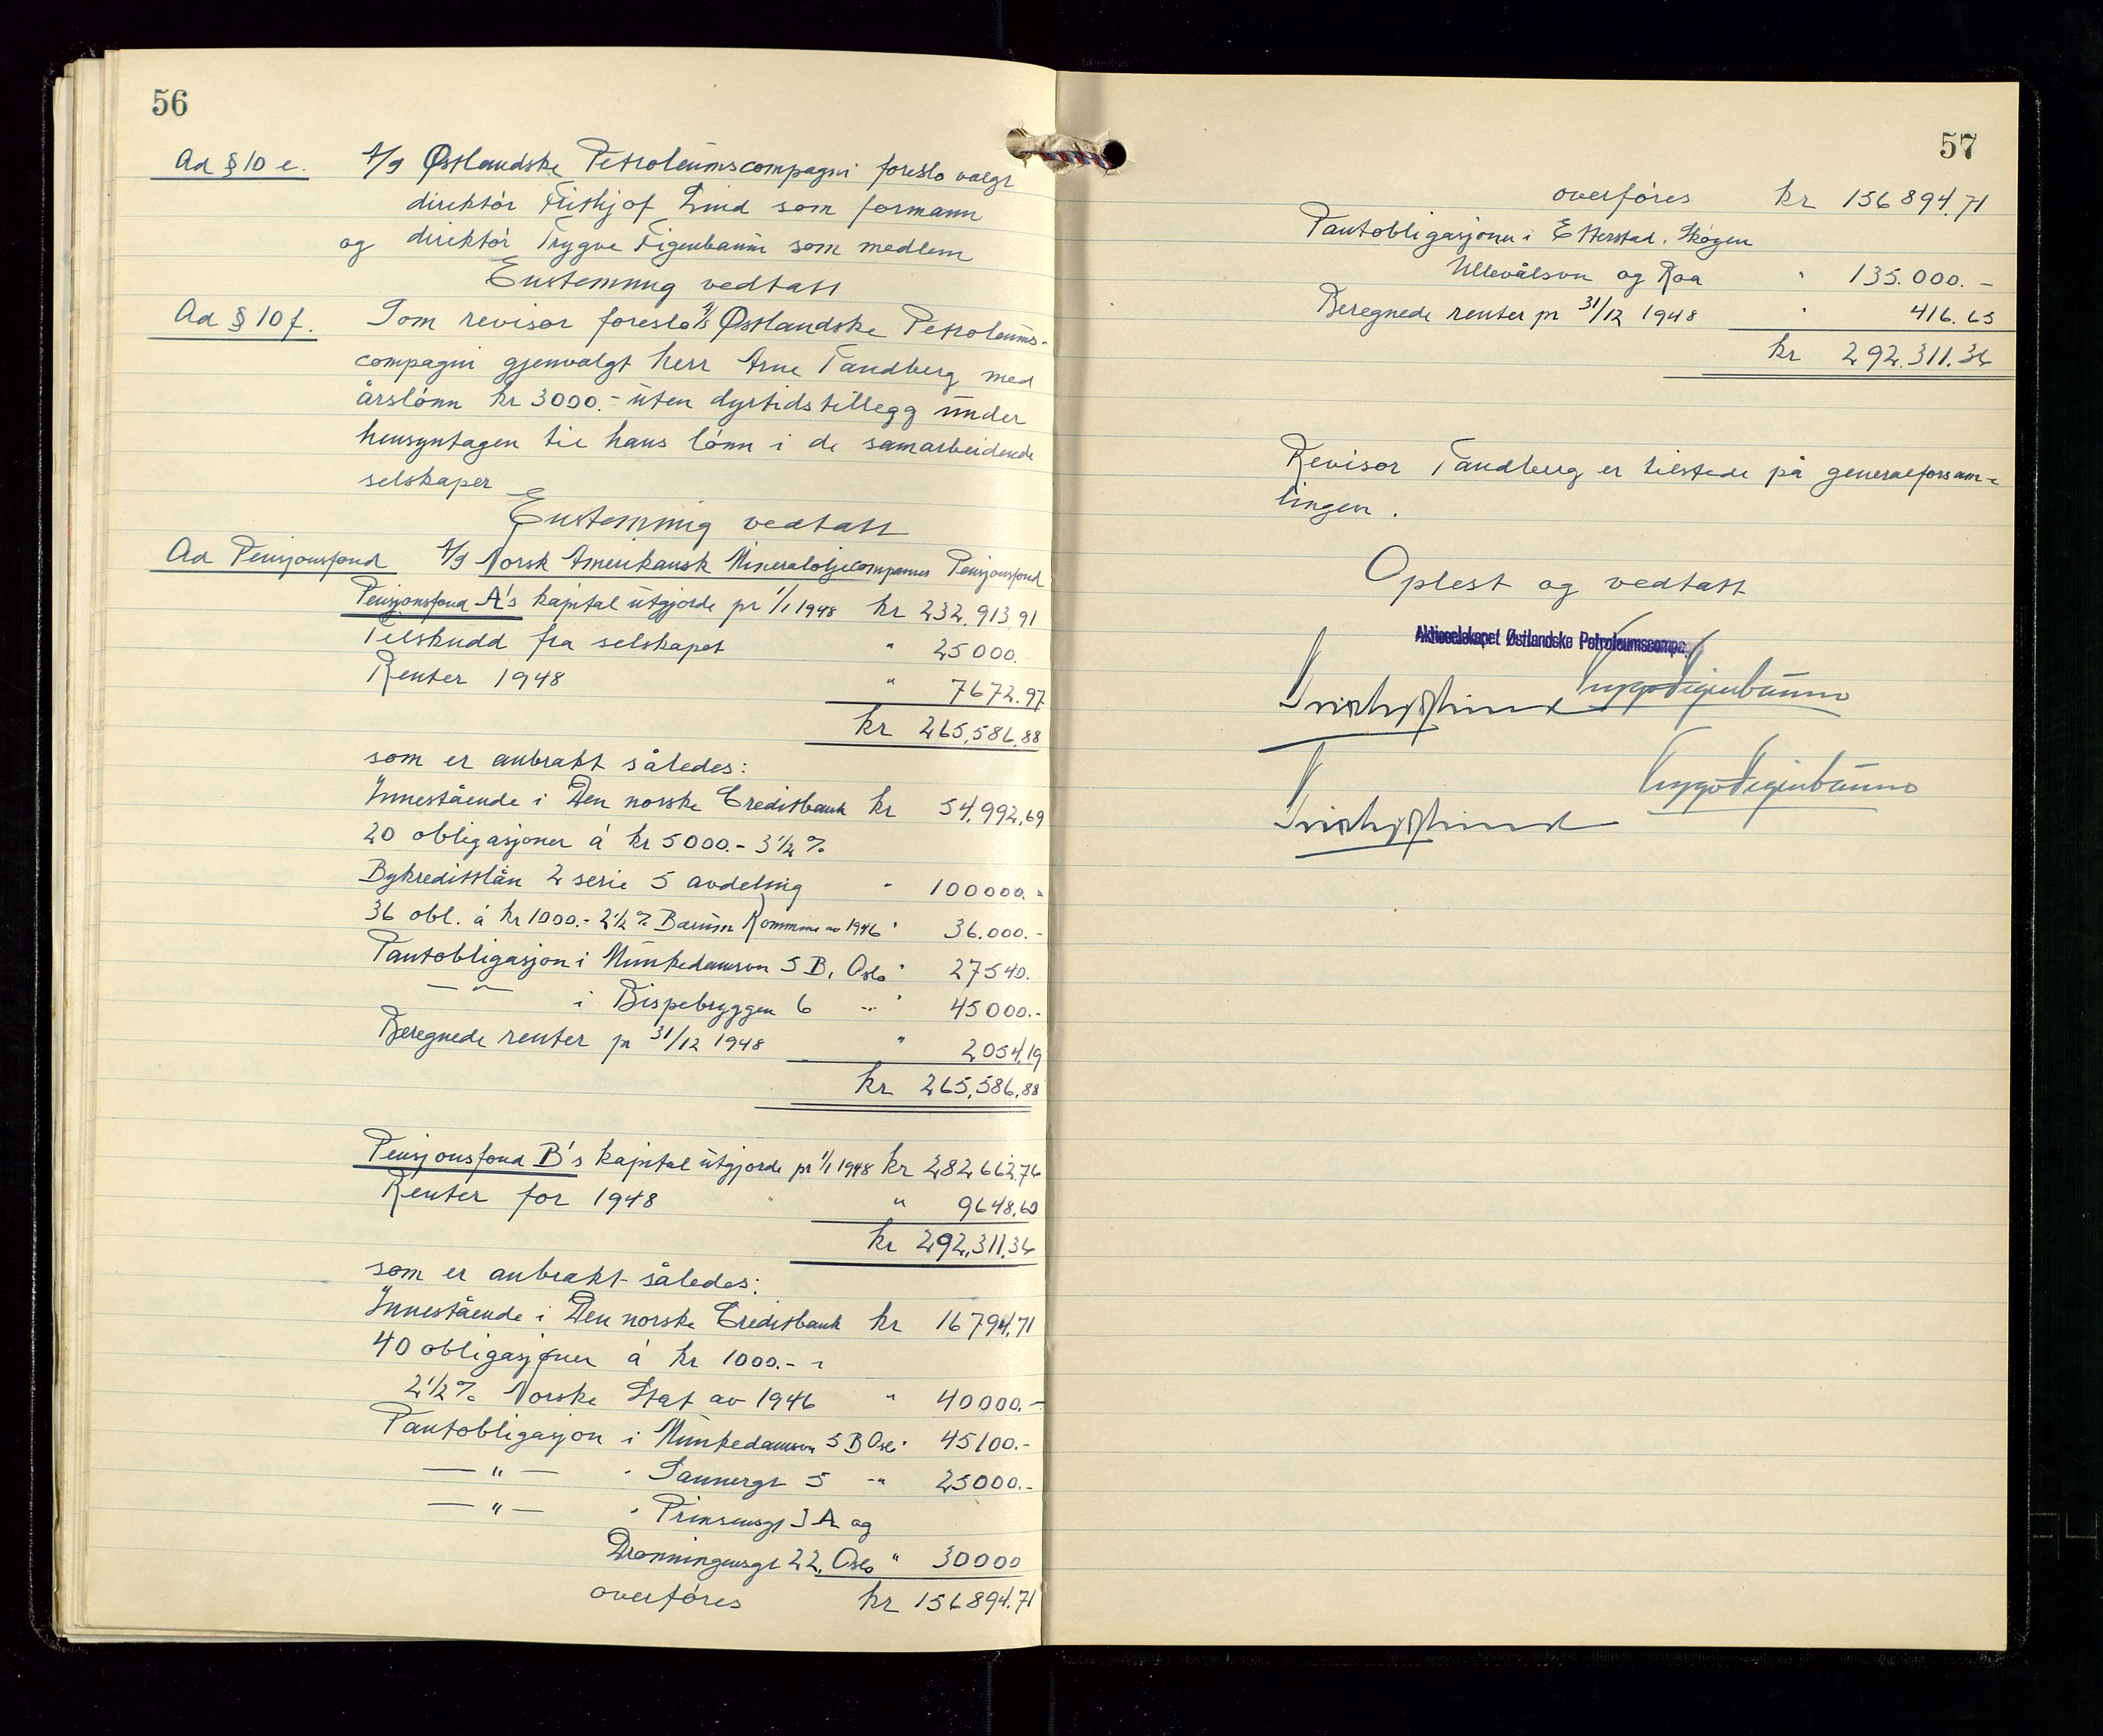 56
Ad § 10 e. A/S Østlandske Petroleumscompagni foreslo valgt
direktør Frithjof Lind som formann
og direktør Trygve Figenbaum som medlem
Enstemmig vedtatt
Ad § 10 f. Som revisor foreslo A/S Østlandske Petroleums-
compagni gjenvalgt herr Arne Tandberg med
årslønn kr 3000.- uten dyrtidstillegg under
hensyntagen til hans lønn i de samarbeidende
selskaper
Enstemmig vedtatt
Ad Pensjonsfond A/S Norsk Amerikansk Mineraloljecompanies Pensjonsfond
Pensjonsfond A's kapital utgjorde pr 1/1 1948 kr 232,913,91
Tilskudd fra selskapet " 25000.
Renter 1948 " 7672.97
kr 265,586,88
som er anbrakt således:
Innestående i Den norske Creditbank kr 54,992,69
20 obligasjoner á kr 5000.- 3 1/2 %
Bykredittlån 2 serie 5 avdeling " 100000.-
36 obl. á kr 1000.- 2 1/2 % Bærum Kommune av 1946 " 36.000.-
Pantobligasjon i Munkedamsvn 5 B, Oslo " 27540.
— " — i Bispebryggen 6 -"- " 45000.-
Beregnede renter pr 31/12 1948 " 2054,19
kr 265,586,88
Pensjonsfond B's kapital utgjorde pr 1/1 1948 kr 282662.76
Renter for 1948 " 9648,60
kr 292,311,36
som er anbrakt således:
Innestående i Den norske Creditbank kr 16794,71
40 obligasjoner á kr 1000.- i
2 1/2 % Norske Stat av 1946 " 40000.-
Pantobligasjon i Munkedamsvn 5 B Oslo " 45100.-
— " — " Sannergt 5 -"- 25000.-
— " — " Prinsensgt 3 A og
Dronningensgt 22, Oslo " 30000
overføres kr 156894.71
57
overføres kr 156894,71
Pantobligasjoner i Etterstad, Skøyen
Ullevålsvn og Roa " 135.000.-
Beregnede renter pr 31/12 1948 " 416.65
kr 292.311.36
Revisor Tandberg er tilstede på generalforsam-
lingen.
Oplest og vedtatt
Aktieselskapet Østlandske Petroleumscomp.
Frithjof Lind Trygve Figenbaum
Trygve Figenbaum
Frithjof Lind